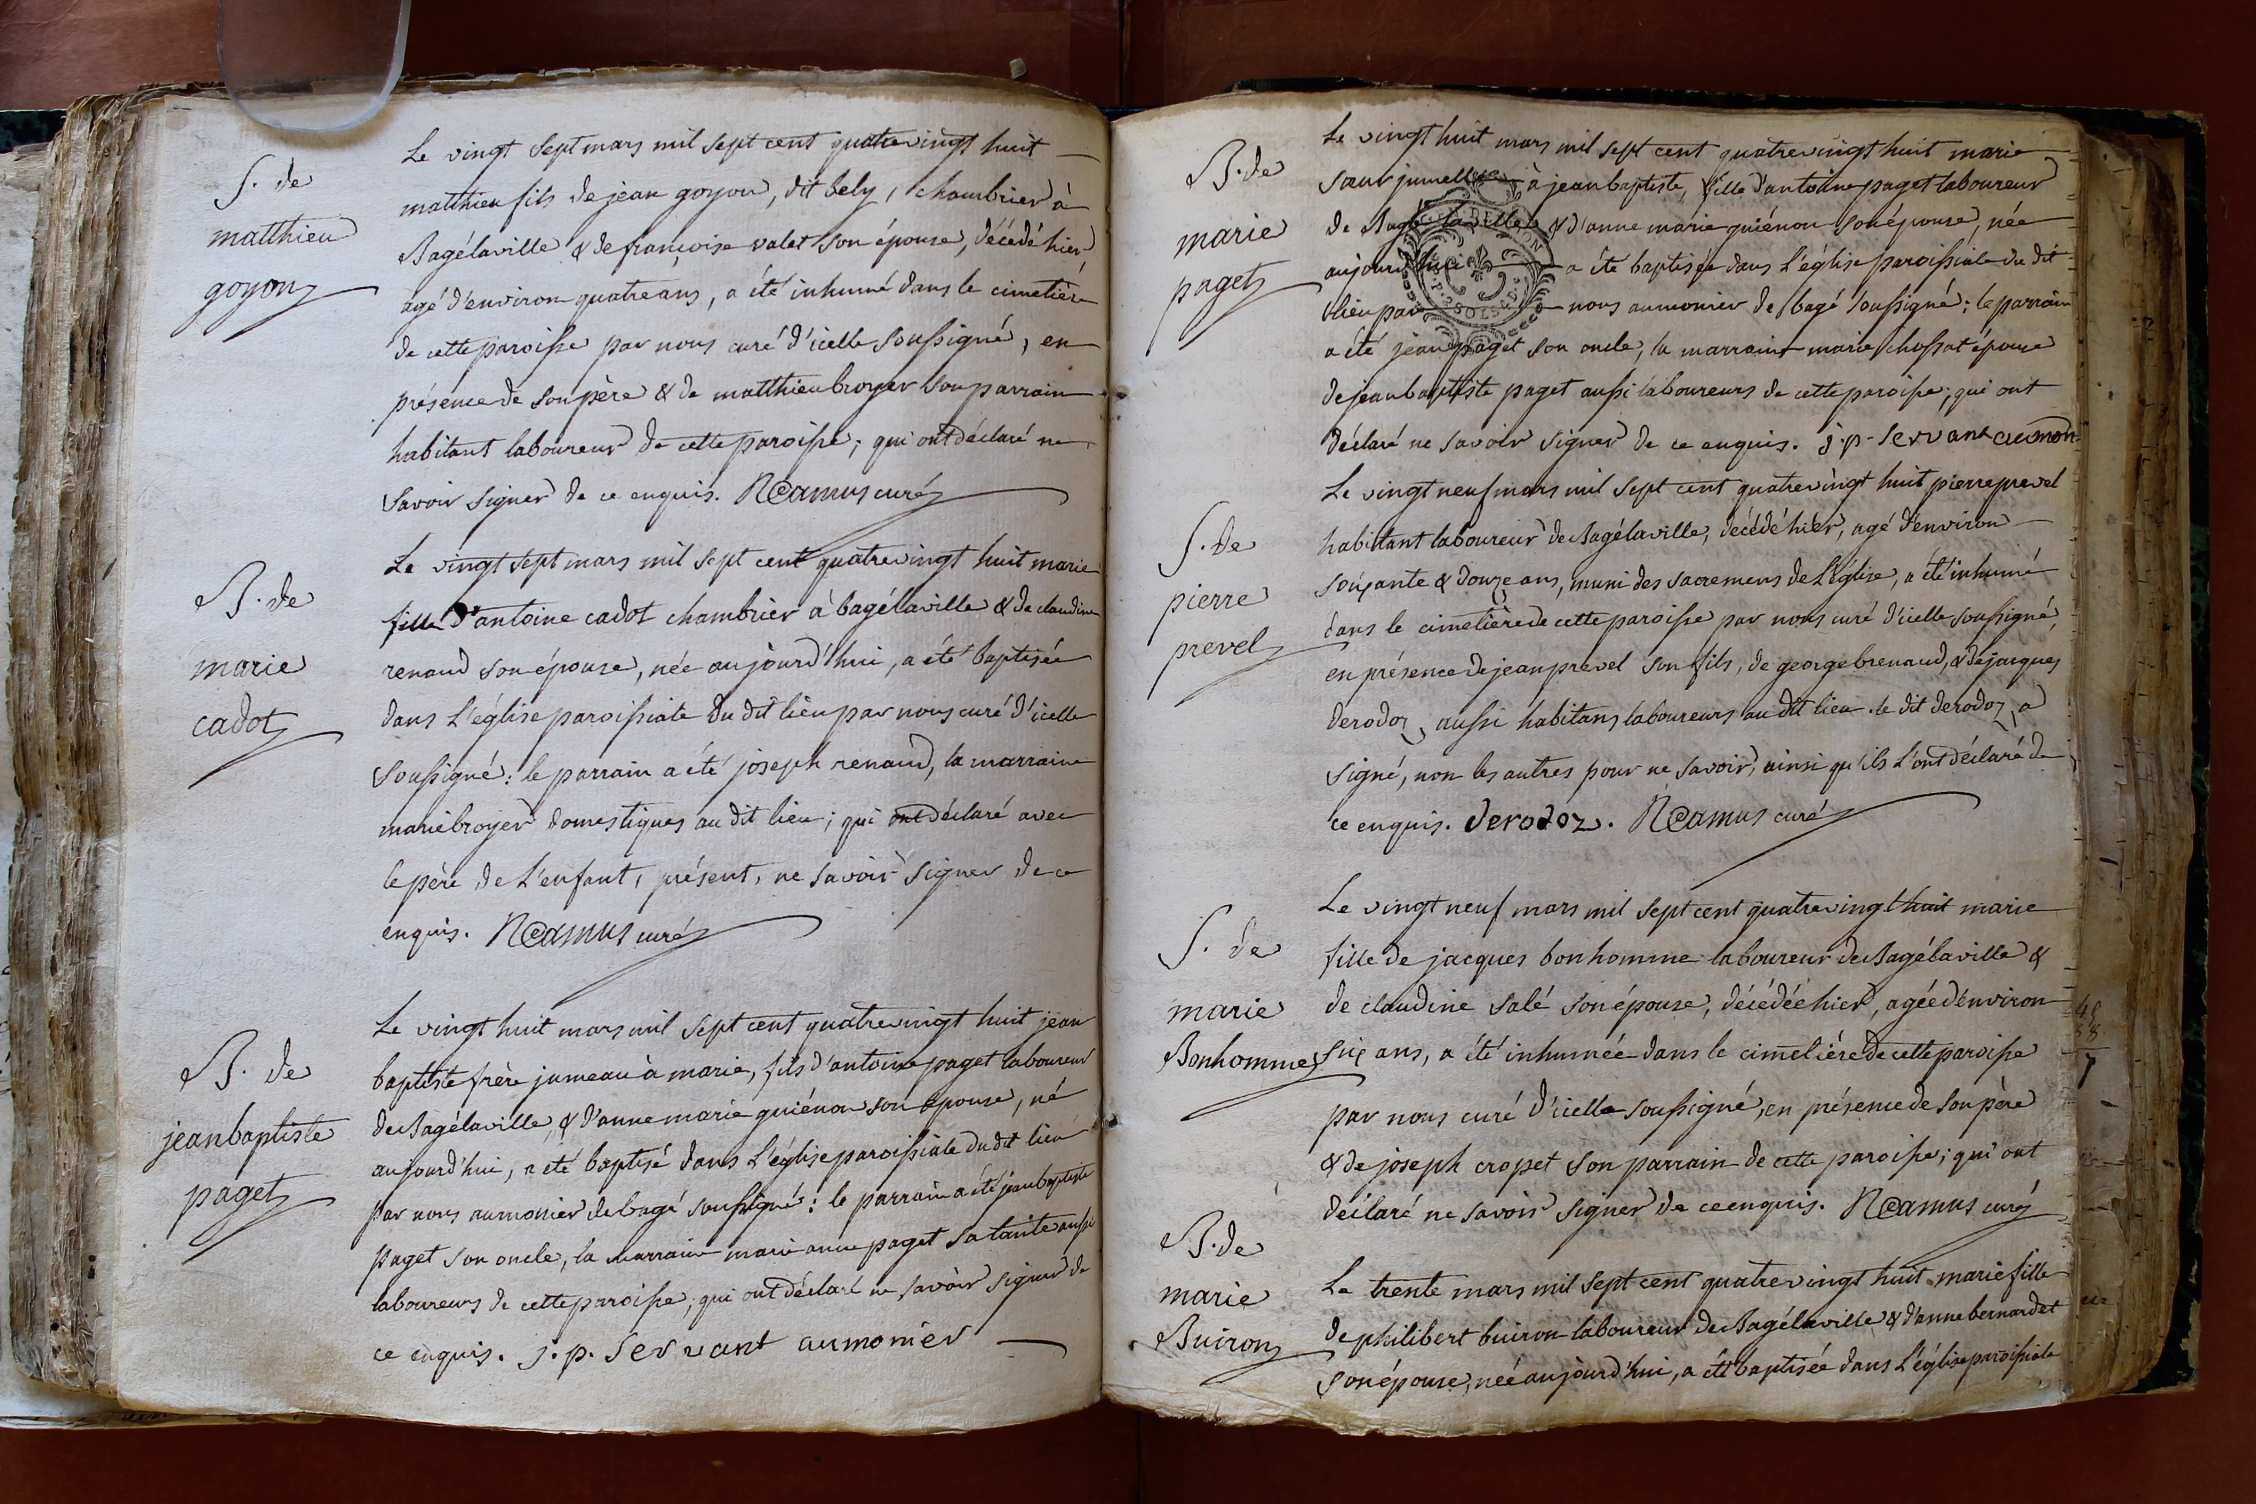 S. de
matthieu
goyon
Le vingt sept mars mil sept cent quatrevingt huit
matthieu fils de jean goyon, dit bely, chambrier à
Bagélaville & de françoise valet son épouse, décédé hier,
agé d'environ quatre ans, a été inhumé dans le cimetière
de cette paroisse par nous curé d'icelle soussigné, en
présence de son père & de matthieu broyer son parrain
habitant laboureur de cette paroisse; qui ont déclaré ne
savoir signer de ce enquis. Camus curé
B. de
marie
cadot
Le vingt sept mars mil sept cent quatrevingt huit marie
fille d'antoine cadot chambrier à bagélaville & de claudine
renaud son épouse, née aujourd'hui, a été baptisée
dans l'église paroissiale du dit lieu par nous curé d'icelle
soussigné: le parrain a été joseph renaud, la marraine
marie broyer domestiques au dit lieu; qui ont déclaré avec
le père de l'enfant, présent, ne savoir signer de ce
enquis. Camus curé
B. de
jean baptiste
paget
Le vingt huit mars mil sept cent quatrevingt huit jean
baptiste frère jumeau à marie, fils d'antoine paget laboureur
de Bagélaville, & d'anne marie guiénon son épouse, né
aujourd'hui, a été baptisé dans l'église paroissiale du dit lieu
par nous aumonier de bagé soussigné: le parrain a été jean baptiste
paget son oncle, la marraine marie anne paget sa tante aussi
laboureurs de cette paroisse; qui ont déclaré ne savoir signer de
ce enquis. j. p. Servant aumonier
B. de
marie
paget
Le vingt huit mars mil sept cent quatrevingt huit marie
sœur jumelle à jean baptiste, fille d'antoine paget laboureur
de Bagé la ville & d'anne marie guiénon son épouse, née
aujourd'hui a été baptisée dans l'église paroissiale du dit
lieu par nous aumonier de bagé soussigné: le parrain
a été jean paget son oncle, la marraine marie chossat épouse
de jean baptiste paget aussi laboureurs de cette paroisse, qui ont
déclaré ne savoir signer de ce enquis. j. p. Servant aumon
S. de
pierre
prevel
Le vingt neuf mars mil sept cent quatrevingt huit pierre prevel
habitant laboureur de Bagélaville, décédé hier, agé d'environ
soixante & douze ans, muni des sacremens de l'église, a été inhumé
dans le cimetière de cette paroisse par nous curé d'icelle soussigné,
en présence de jean prevel son fils, de george brenaud, & de jacques
derodoz, aussi habitans laboureurs au dit lieu. le dit derodoz, a
signé, non les autres pour ne savoir, ainsi qu'ils l'ont déclaré de
ce enquis. derodoz. Camus curé
S. de
marie
Bonhomme
Le vingt neuf mars mil sept cent quatrevingt huit marie
fille de jacques bonhomme laboureur de Bagélaville &
de claudine salé son épouse, décédée hier, agée d'environ
six ans, a été inhumée dans le cimetière de cette paroisse
par nous curé d'icelle soussigné, en présence de son père
& de joseph cropet son parrain de cette paroisse; qui ont
déclaré ne savoir signer de ce enquis. Camus curé
B. de
marie
Buiron
Le trente mars mil sept cent quatrevingt huit marie fille
de philibert buiron laboureur de Bagélaville & d'anne bernardet
son épouse, née aujourd'hui, a été baptisée dans l'église paroissiale